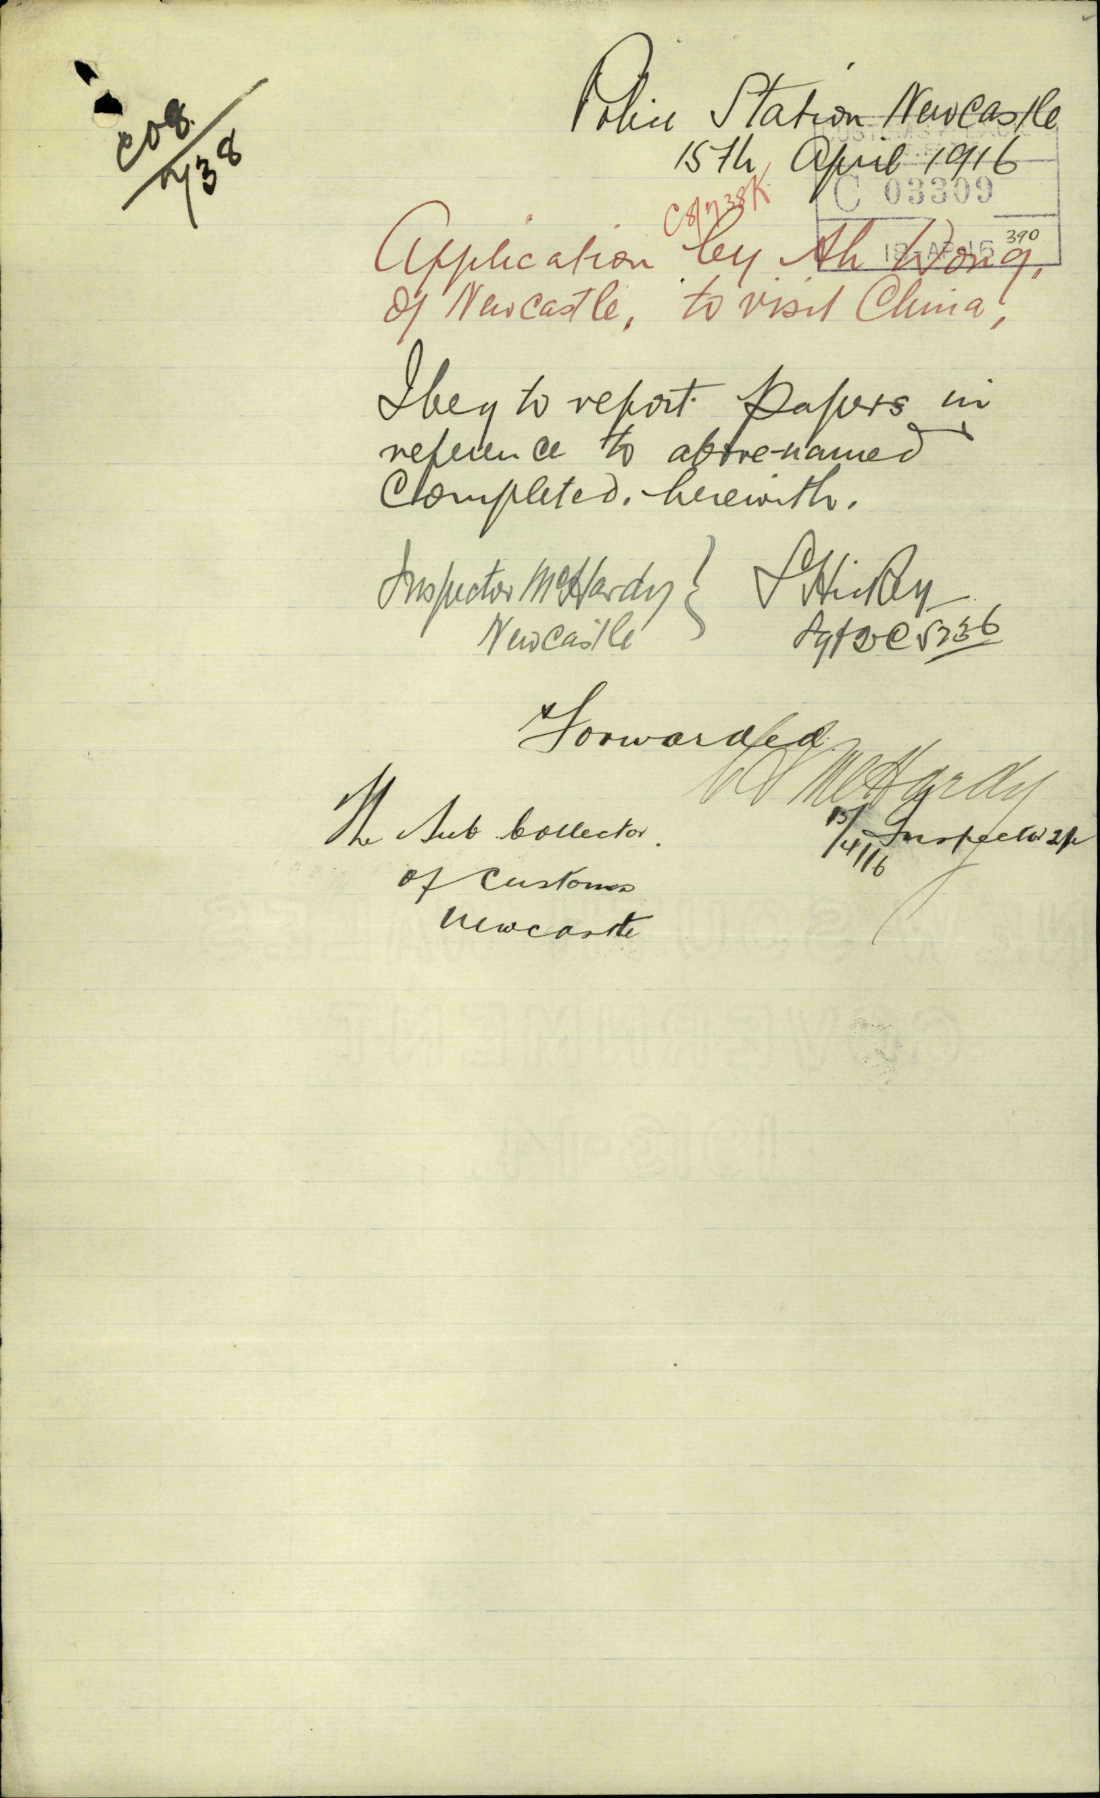 C08
738
Police Station Newcastle
15th April 1916
C 03309
C8/738K
390
Application by Ah Wong,
of Newcastle, to visit China,
I beg to report papers in
reference to above-named
Completed. herewith.
Inspector McHardy } S Hickey
Newcastle Sgt 2C 5236
Forwarded
McHardy
15/4/16 Inspector
The Sub Collector.
of Customs
Newcastle